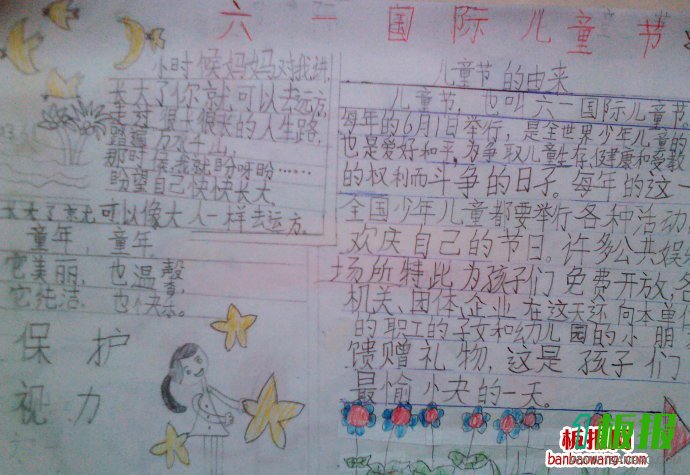 六一国际儿童节
小时候妈妈对我讲,
长大了你就可以去远方,
走过很长很长的人生路,
踏遍万水千山,
那时候我就盼呀盼……
盼望自己快快长大,
长大了就可以像大人一样去远方。
童年,童年,
它美丽,也温馨
它纯洁,也快乐。
保护
视力
儿童节的由来
儿童节,也叫六一国际儿童节
每年的6月1日举行,是全世界少年儿童的
也是爱好和平,为争取儿童生存、健康和受教
的权利而斗争的日子。每年的这一
全国少年儿童都要举行各种活动
欢庆自己的节日。许多公共娱
场所特此为孩子们免费开放,各
机关、团体、企业在这天还向本单位
的职工的子女和幼儿园的小朋
馈赠礼物,这是孩子们
最愉小夬的一天。
板报
板报
banbaowang.com